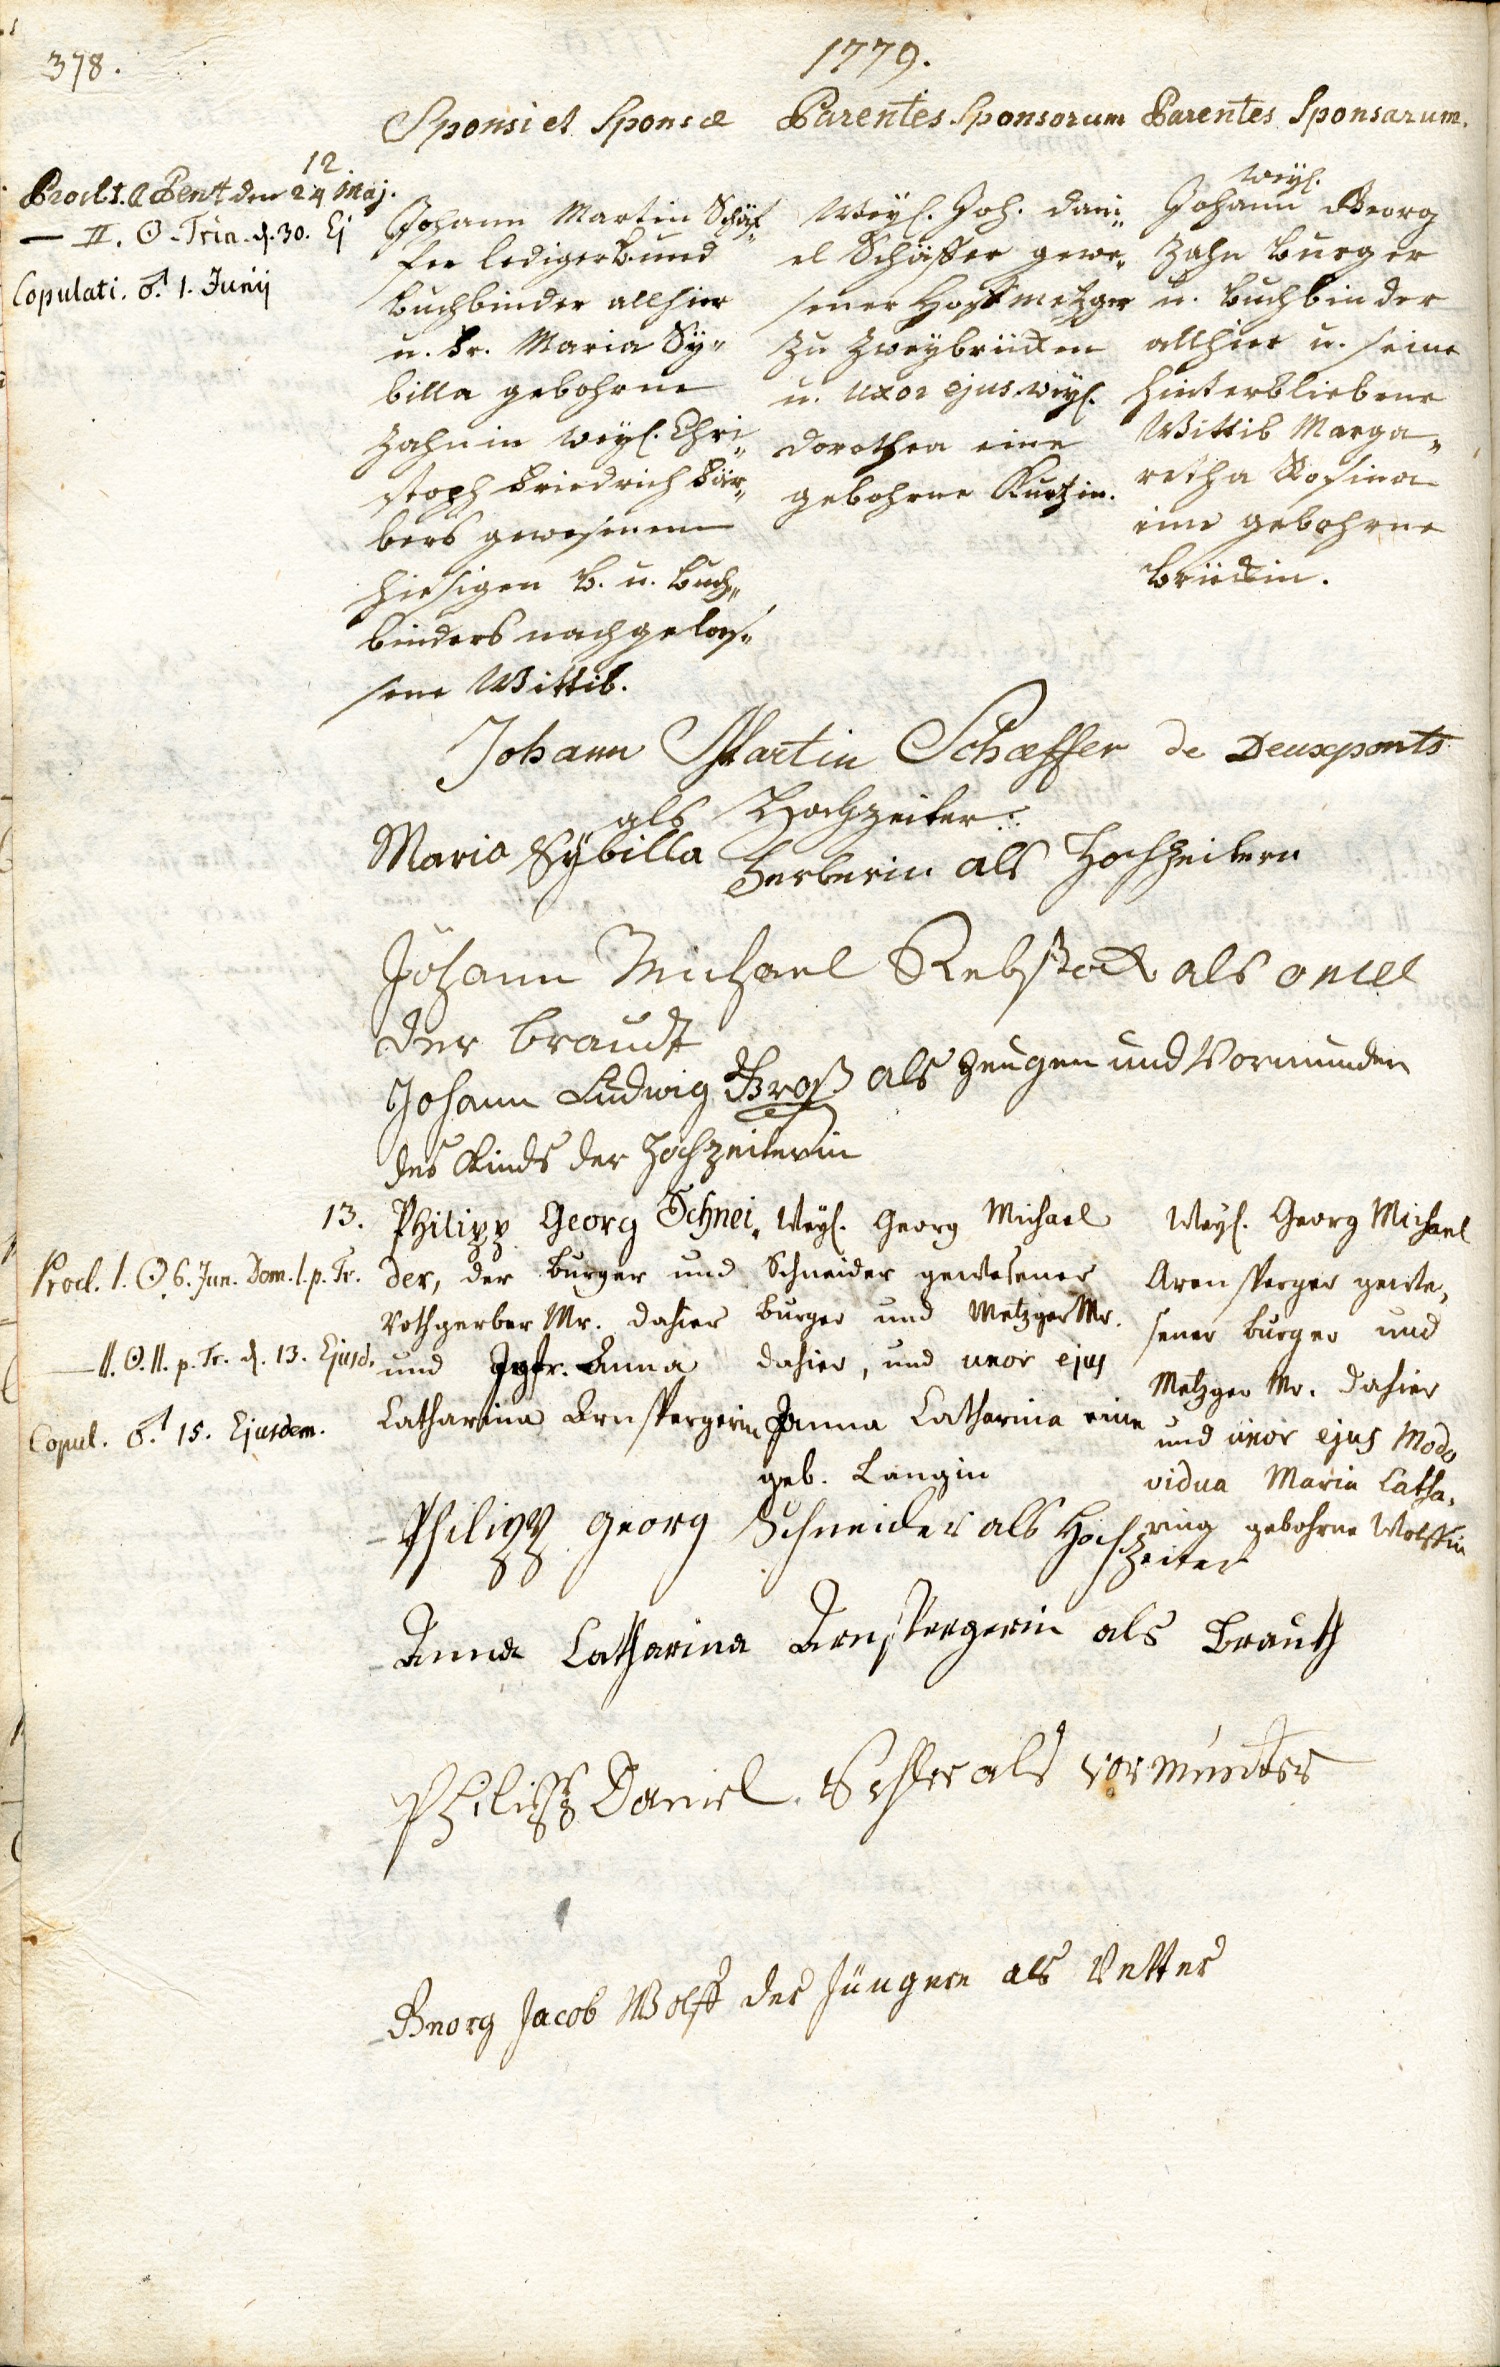 378.
1779.
Sponsi et Sponsæ
Parentes Sponsorum
Parentes Sponsarum.
12.
Procl. I. Pent den 24 Maj.
— II. ☉. Trin. d. 30. Ej
Copulati. ♂. 1. Junij
Johann Martin Schäf„
fer lediger B. und
Buchbinder allhier
u. Fr. Maria Sy„
billa gebohrne
Zahnin weyl. Chri„
stoph Friedrich Bär„
bers gewesenen
hiesigen B. u. Buch„
binders nachgelas„
sene Wittib.
Weyl. Joh. Dani„
el Schäffer gewe„
sener Hoffmetzger
zu Zweybrücken
u. uxor ejus weyl.
Dorothea eine
gebohrne Kurtzin.
weyl.
Johann Georg
Zahn Burger
u. Buchbinder
allhier u. seine
hinterbliebene
Wittib Marga„
retha Rosina
eine gebohrne
Brückin.
Johann Martin Schæffer de Deuxponts
als Hochzeiter
Maria Sybilla Berberin als Hochzeitern
Johann Michael Rebstock als oncel
der Braudt
Johann Ludwig Groß als Zeugen und Vormunder
des Kinds der Hochzeiterin
13.
Procl. I. ☉ 6. Jun. Dom. I. p. Tr.
— II. ☉. II. p. Tr. d. 13. Ejusd.
Copul. ♂. 15. Ejusdem.
Philipp Georg Schnei„
der, der Burger und
Rothgerber Mr. dahier
und Jgfr. Anna
Catharina Arnspergerin
Weyl. Georg Michael
Schneider gewesener
Burger und Metzger Mr.
dahier, und uxor ejus
Anna Catharina eine
geb. Langin
Weyl. Georg Michael
Arensperger gewe„
sener Burger und
Metzger Mr. dahier
und uxor ejus modo
vidua Maria Catha„
rina gebohrne Wolffin
Philipp Georg Schneider als Hochzeiter
Anna Catharina Arnspergerin als Brauth
Philipp Daniel als vormunder
Georg Jacob Wolff der Jüngere als Vetter